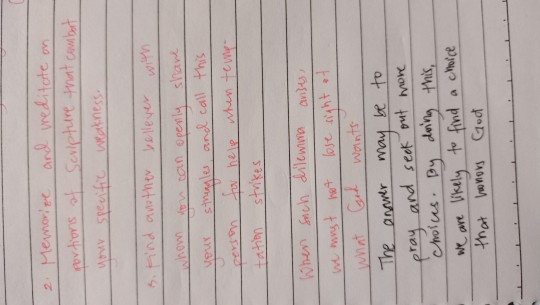 2. Memorize and meditate on
portions of Scripture that combat
your specific weakness.
3. Find another believer with
whom you can openly share
your struggles, and call this
person for help when temp-
tation strikes
When such dilemma arises,
we must not lose sight of
what God wants
The answer may be to
pray and seek out more
choices. By doing this,
we are likely to find a choice
that honors God